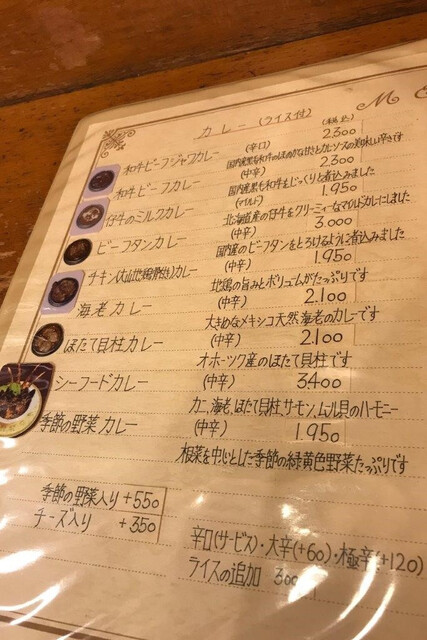 M
カレー (ライス付)
(税込)
和牛ビーフジャワカレー (辛口) 2300
国内産黒毛和牛のほのかな甘さとカレーソースの美味しい辛さです
和牛ビーフカレー (中辛) 2300
国内産黒毛和牛をじっくりと煮込みました
仔牛のミルクカレー (マイルド) 1.950
北海道産の仔牛をクリーミィーなマイルドカレーにしました
ビーフタンカレー (中辛) 3.000
国内産のビーフタンをとろけるように煮込みました
チキン(大山地鶏骨付)カレー (中辛) 1.950
地鶏の旨みとボリュムがたっぷりです
海老カレー (中辛) 2.100
大きめなメキシコ天然海老のカレーです
ほたて貝柱カレー (中辛) 2.100
オホーツク産のほたて貝柱です
シーフードカレー (中辛) 3400
カニ、海老、ほたて貝柱、サーモン、ムル貝のハーモニー
季節の野菜カレー (中辛) 1.950
根菜を中心とした季節の緑黄色野菜たっぷりです
季節の野菜入り +550
チーズ入り +350
辛口(サービス)・大辛(+60)・極辛(+120)
ライスの追加 300